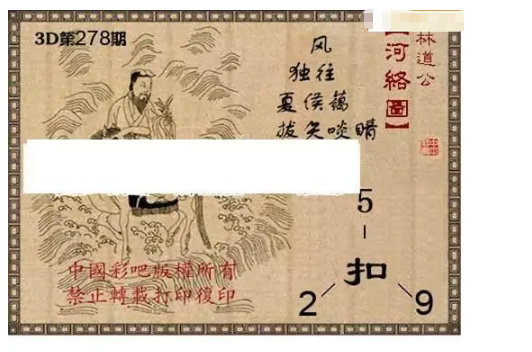 3D第278期
林道公
【河絡圖】
风
独往
夏侯蔼
拔矢啖睛
5
扣
2
9
中國彩吧版權所有
禁止轉載打印復印